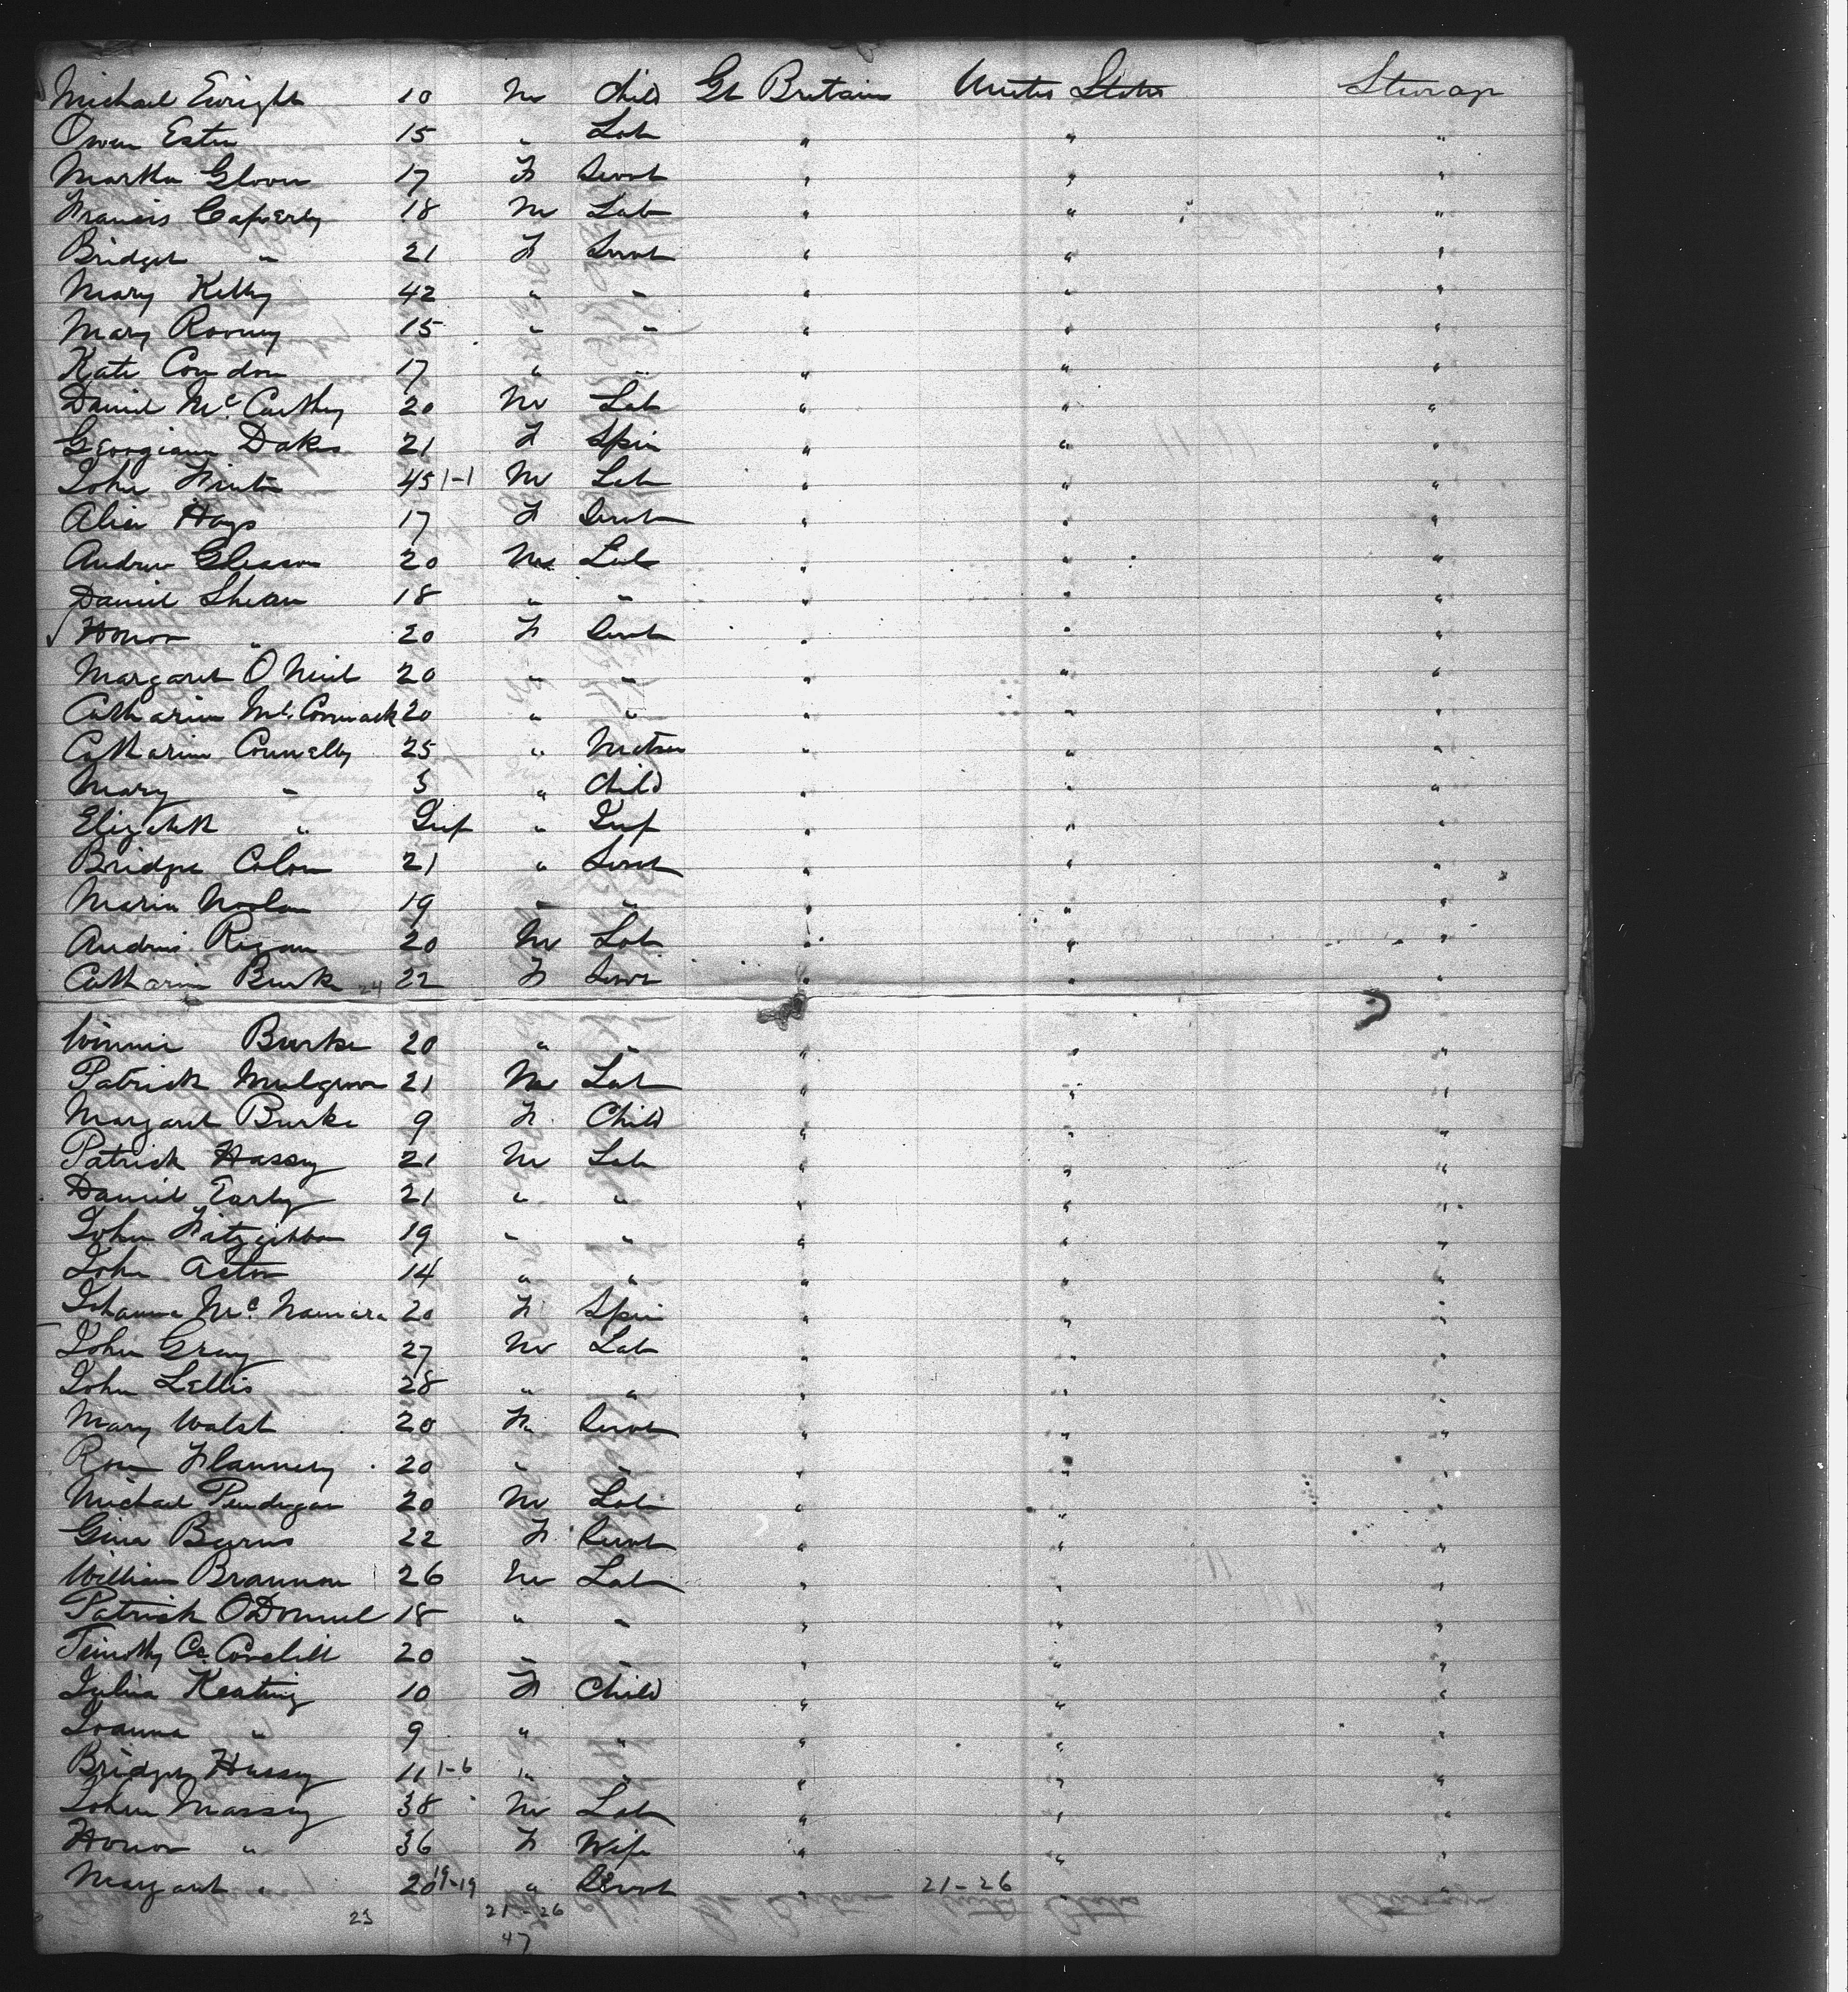 Michael Enright 10 M Child Gt Britain United States Steerage
Owen Esten 15 " Lab " " "
Martha Glover 17 F Servt " " "
Francis Caferty 18 M Lab " " "
Bridget " 21 F Servt " " "
Mary Kelly 42 " " " " "
Mary Rooney 15 " " " " "
Kate Condon 17 " " " " "
Daniel McCarthy 20 M Lab " " "
Georgiana Dakes 21 F Spin " " "
John 45 1-1 M Lab " " "
Alice Hays 17 F Servt " " "
Andrew Gleason 20 M Lab " " "
Daniel Shean 18 " " " " "
√ Honor " 20 F Servt " " "
Margaret O Neil 20 " " " " "
Catharine McCormack 20 " " " " "
Catharine Connelly 25 " Matron " " "
Mary " 3 " Child " " "
Elizabeth " Inf " Inf " " "
Bridget Colon 21 " Servt " " "
Maria Noolan 19 " " " " "
Andrew Regan 20 M Lab " " "
Catharine Burke 24 22 F Servt " " "
Winnie Burke 20 " " " " "
Patrick Mulgrew 21 M Lab " " "
Margaret Burke 9 F Child " " "
Patrick Hassey 21 M Lab " " "
Daniel Early 21 " " " " "
John Fitzgibbon 19 " " " " "
John Acton 14 " " " " "
Johanna McNamara 20 F Spin " " "
John Gray 27 M Lab " " "
John Lellis 28 " " " " "
Mary Walsh 20 F Servt " " "
Rose Flannery 20 " " " " "
Michael Pendegan 20 M Lab " " "
Gina Burns 22 F Servt " " "
William Brannon 26 M Lab " " "
Patrick ODonnel 18 " " " " "
Timothy 20 " " " " "
Julia Keating 10 F Child " " "
Joanna " 9 " " " " "
Bridget Hussey 11 1-6 " " " " "
John Massey 38 M Lab " " "
Honor " 36 F Wife " " "
Margaret " 20 19-19 " Servt " 21-26 "
23 21-26
47